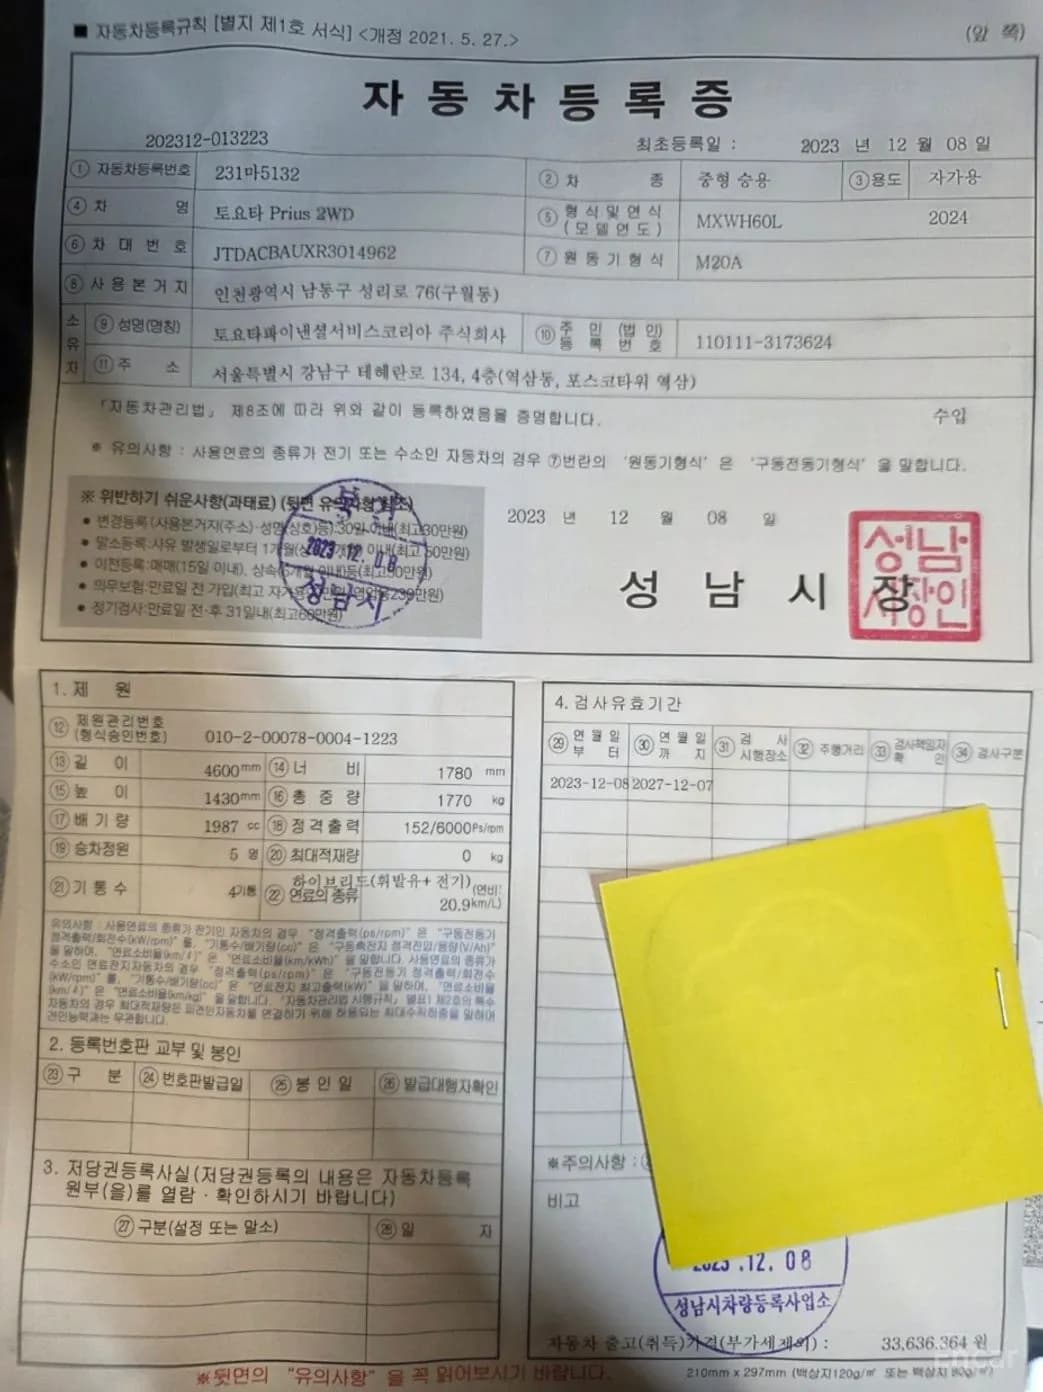 ■ 자동차등록규칙 [별지 제1호 서식] <개정 2021. 5. 27.>
(앞 쪽)
자동차등록증
202312-013223
최초등록일 : 2023 년 12 월 08 일
① 자동차등록번호 231마5132 ② 차 종 중형 승용 ③용도 자가용
④ 차 명 토요타 Prius 2WD ⑤ 형식 및 연식 (모델연도) MXWH60L 2024
⑥ 차 대 번 호 JTDACBAUXR3014962 ⑦ 원 동 기 형 식 M20A
⑧ 사 용 본 거 지 인천광역시 남동구 성리로 76(구월동)
소유자 ⑨ 성명(명칭) 토요타파이낸셜서비스코리아 주식회사 ⑩ 주 민 (법 인) 등 록 번 호 110111-3173624
⑪ 주 소 서울특별시 강남구 테헤란로 134, 4층(역삼동, 포스코타워 역삼)
「자동차관리법」 제8조에 따라 위와 같이 등록하였음을 증명합니다.
수입
※ 유의사항 : 사용연료의 종류가 전기 또는 수소인 자동차의 경우 ⑦번란의 '원동기형식' 은 '구동전동기형식' 을 말합니다.
※ 위반하기 쉬운사항(과태료) (뒷면 유의사항 참조)
• 변경등록(사용본거지(주소)·성명(상호)등):30일 이내(최고30만원)
• 말소등록:사유 발생일로부터 1개월 이내(최고 50만원)
• 이전등록:매매(15일 이내), 상속(6개월 이내)등(최고50만원)
• 의무보험:만료일 전 가입(최고
• 정기검사:만료일 전·후 31일내(최고60만원)
2023.12.08
성남시
2023 년 12 월 08 일
성 남 시 장
성남시장인
1. 제 원
⑫ 제원관리번호 (형식승인번호) 010-2-00078-0004-1223
⑬ 길 이 4600mm ⑭ 너 비 1780 mm
⑮ 높 이 1430mm ⑯ 총 중 량 1770 kg
⑰ 배 기 량 1987 cc ⑱ 정격출력 152/6000Ps/rpm
⑲ 승차정원 5 명 ⑳ 최대적재량 0 kg
㉑ 기 통 수 4기통 ㉒ 연료의 종류 하이브리드(휘발유+ 전기) (연비: 20.9km/L)
유의사항 : 사용연료의 종류가 전기인 자동차의 경우 "정격출력(ps/rpm)" 은 "구동전동기
정격출력/회전수(kW/rpm)" 를, "기통수/배기량(cc)" 은 "구동축전지 정격전압/용량(V/Ah)"
을 말하며, "연료소비율(km/ℓ)" 은 "연료소비율(km/kWh)" 을 말합니다. 사용연료의 종류가
수소인 연료전지자동차의 경우 "정격출력(ps/rpm)" 은 "구동전동기 정격출력/회전수
(kW/rpm)" 를, "기통수/배기량(cc)" 은 "연료전지 최고출력(kW)" 을 말하며, "연료소비율
(km/ℓ)" 은 "연료소비율(km/kg)" 을 말합니다. 「자동차관리법 시행규칙」 별표1 제2호의 특수
자동차의 경우 최대적재량은 피견인자동차를 연결하기 위해 허용되는 최대수직하중을 말하며
견인능력과는 무관합니다.
2. 등록번호판 교부 및 봉인
㉓ 구 분 ㉔ 번호판발급일 ㉕ 봉 인 일 ㉖ 발급대행자확인
3. 저당권등록사실(저당권등록의 내용은 자동차등록
원부(을)를 열람·확인하시기 바랍니다)
㉗ 구분(설정 또는 말소) ㉘ 일 자
4. 검사유효기간
㉙ 연월일 부 터 ㉚ 연월일 까 지 ㉛ 검 사 시행장소 ㉜ 주행거리 ㉝ 검사책임자 확 인 ㉞ 검사구분
2023-12-08 2027-12-07
※주의사항 :
비고
2023.12.08
성남시차량등록사업소
자동차 출고(취득)가격(부가세제외) : 33,636,364 원
※뒷면의 "유의사항" 을 꼭 읽어보시기 바랍니다.
210mm × 297mm (백상지120g/㎡ 또는 백상지 80g/㎡)
Encar